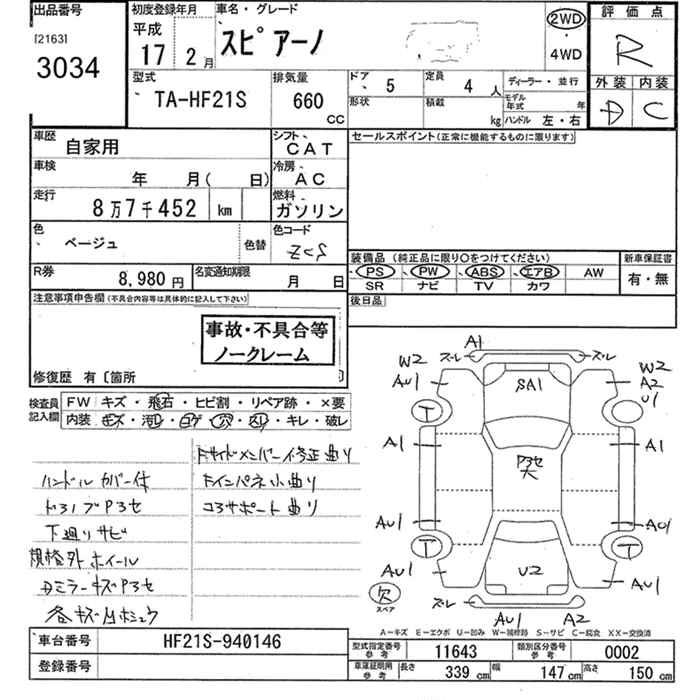 出品番号 初度登録年月 車名・グレード 2WD ・ 4WD 評価点
[2163]
3034
平成 17 2月 スピアーノ R
型式 排気量 ドア 5 定員 4人 ディーラー・並行 外装 内装
TA-HF21S 660 CC 形状 積載 kg モデル年式 年 ハンドル 左・右 D C
車歴 自家用 シフト CAT セールスポイント(正常に機能するものに限ります)
車検 年 月( 日) 冷房 AC
走行 8万7千452 km 燃料 ガソリン
色 ベージュ 色替 色コード ZCS
装備品(純正品に限り○をつけてください) 新車保証書
PS PW ABS エアB AW 有・無
SR ナビ TV カワ
R券 8,980円 名変通知期限 月 日
後日品
注意事項申告欄(不具合内容等は具体的に記入して下さい)
事故・不具合等
ノークレーム
修復歴 有〔箇所
検査員記入欄 FW キズ・飛石・ヒビ割・リペア跡・×要
内装 キズ・汚レ・コゲ・穴・凹・キレ・破レ
Fサイドメンバー修正曲り
ハンドルカバー付 Fインパネ小曲り
ドアノブアヌセ コアサポート曲り
下廻りサビ
規格外ホイール
Dミラーキズアヌセ
各キズ小ボコユウ
A1
ズレ ズレ
W2 W2
AU1 A2
U1
SA1
T
A1 A1
アヌセ大
AU1 AU1
T T
AU1 AU1
U2
欠
スペア
ズレ
AU1 A2
A-キズ E-エクボ U-凹み W-補修跡 S-サビ C-腐食 XX-交換済
車台番号 HF21S-940146
登録番号
型式指定番号 参考 11643 類別区分番号 参考 0002
車庫証明用 参考 長さ 339 cm 幅 147 cm 高さ 150 cm